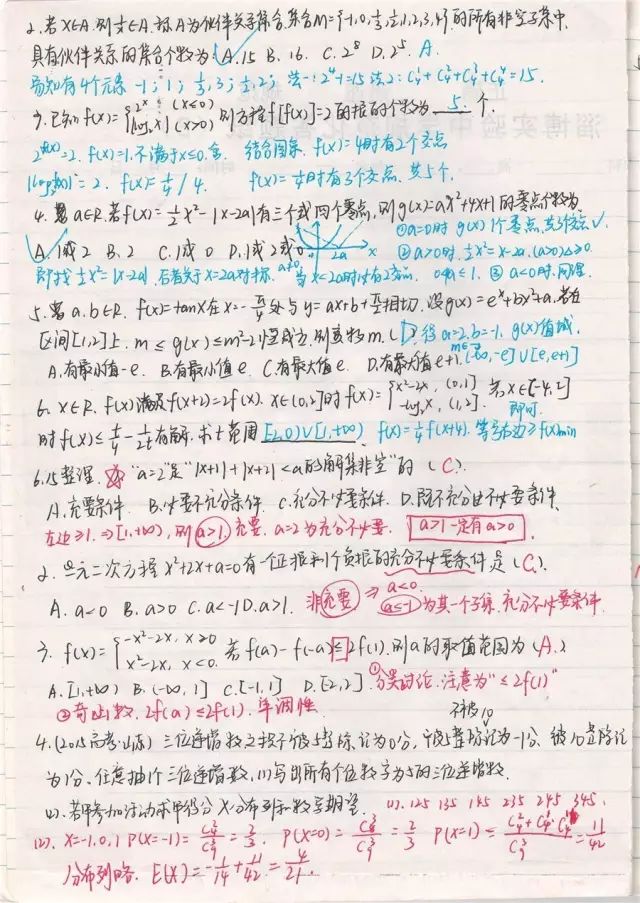 2.若x∈A,则1/x∈A.称A为伙伴关系集合,集合M={-1,0,1/3,1/2,1,2,3,4}的所有非空子集中,
具有伙伴关系的集合个数为(A.15 B.16. C.2^8 D.2^5. A.
易知有4个元素 -1; 1; 1/3,3; 1/2,2; 法一:2^4-1=15 法2:C_4^1+C_4^2+C_4^3+C_4^4=15.
3.已知f(x)={2^x (x≤0) |log_2x| (x>0) 则方程f[f(x)]=2的根的个数为 5. 个.
2^f(x)=2. f(x)=1.不满于x≤0.舍. 结合图象. f(x)=4时有2个交点
=2. f(x)=1/4 / 4. f(x)=1/4时有3个交点.共5个.
4. a∈R.若f(x)=1/2x²-|x-2a|有三个或四个零点,则g(x)=ax²+4x+1的零点个数为
A.1或2 B.2 C.1或0 D.1或2或0 2a x ①a=0时 g(x)1个零点,
②a>0时. 1/2x²=x-2a.(a>0)△≥0.
即找1/2x²=|x-2a| 后者关于x=2a对称. ③a<0时.同理.
5. a.b∈R. f(x)=tanx在x=-π/4处与y=ax+b+π/2相切.设g(x)=e^x+bx²+a.若在
区间[1,2]上. m≤g(x)≤m²-2恒成立.则实数m.(D.得a=2,b=-1. g(x)值域.
A.有最小值-e. B.有最小值e C.有最大值e. D.有最大值e+1. m∈(-∞,-e]∪[e,e+1]
6. x∈R. f(x)满足f(x+2)=2f(x). x∈(0,2]时f(x)={x²-2x, (0,1] -log_2x, (1,2]. 若x∈[-4,2]
即可.
时f(x)≤t/4-1/2t有解.求t范围 [-2,0)∪[1,+∞) f(x)=1/4f(x+4). 等号右边≥f(x)min
6.15整理. "a=2"是"|x+1|+|x+2|<a的解集非空"的(C).
A.充要条件. B.必要不充分条件. C.充分不必要条件. D.既不充分也不必要条件.
左边≥1.⇒[1,+∞),则a>1.充要. a=2为充分不必要. a>1一定有a>0.
2. 一元二次方程x²+2x+a=0有一个正根和1个负根的充分不必要条件是(C.)
A. a<0 B. a>0 C. a<-1 D.a>1. 非充要 ⇒ a<0. a≤-1为其一个子集.充分不必要条件.
3. f(x)={-x²-2x, x≥0 x²-2x, x<0. 若f(a)-f(-a)≤2f(1).则a的取值范围为(A.)
A.[1,+∞) B.(-∞,1] C.[-1,1] D.[-2,2]. ①分类讨论.注意为"≤2f(1)"
②奇函数.2f(a)≤2f(1).单调性.
不被10
4.(2015高考·山东) 三位递增数之积不被5整除,记为0分,被5整除记为-1分.被10整除记
为1分.任意抽1个三位递增数,(1)写出所有个位数字为5的三位递增数.
(2).若甲参加活动求甲得分X分布列和数学期望. (1).125 135 145 235 245 345.
(2). X=-1.0.1 P(X=0)=C_8^3/C_9^3=2/3 =11/42
分布列略. E(X)=-1/14+11/42=4/21.